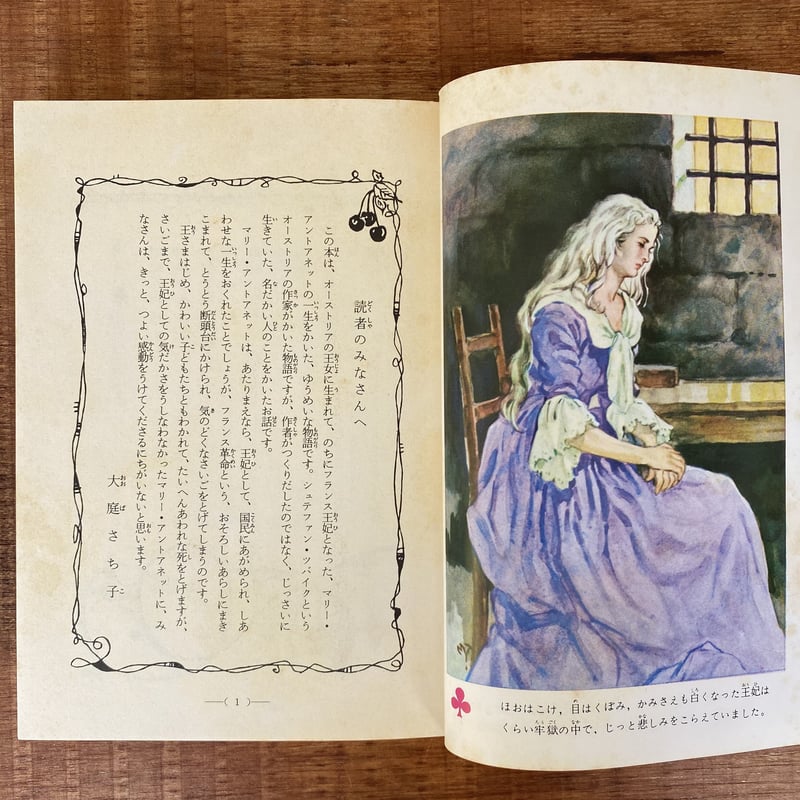 読者のみなさんへ
この本は、オーストリアの王女に生まれて、のちにフランス王妃となった、マリー・
アントアネットの一生をかいた、ゆうめいな物語です。シュテファン・ツバイクという
オーストリアの作家がかいた物語ですが、作者がつくりだしたのではなく、じっさいに
生きていた、名だかい人のことをかいたお話です。
マリー・アントアネットは、あたりまえなら、王妃として、国民にあがめられ、しあ
わせな一生をおくれたことでしょうが、フランス革命という、おそろしいあらしにまき
こまれて、とうとう断頭台にかけられ、気のどくなさいごをとげてしまうのです。
王さまはじめ、かわいい子どもたちともわかれて、たいへんあわれな死をとげますが、
さいごまで、王妃としての気だかさをうしなわなかったマリー・アントアネットに、み
なさんは、きっと、つよい感動をうけてくださるにちがいないと思います。
大庭さち子
(1)
ほおはこけ，目はくぼみ，かみさえも白くなった王妃は
くらい牢獄の中で，じっと悲しみをこらえていました。